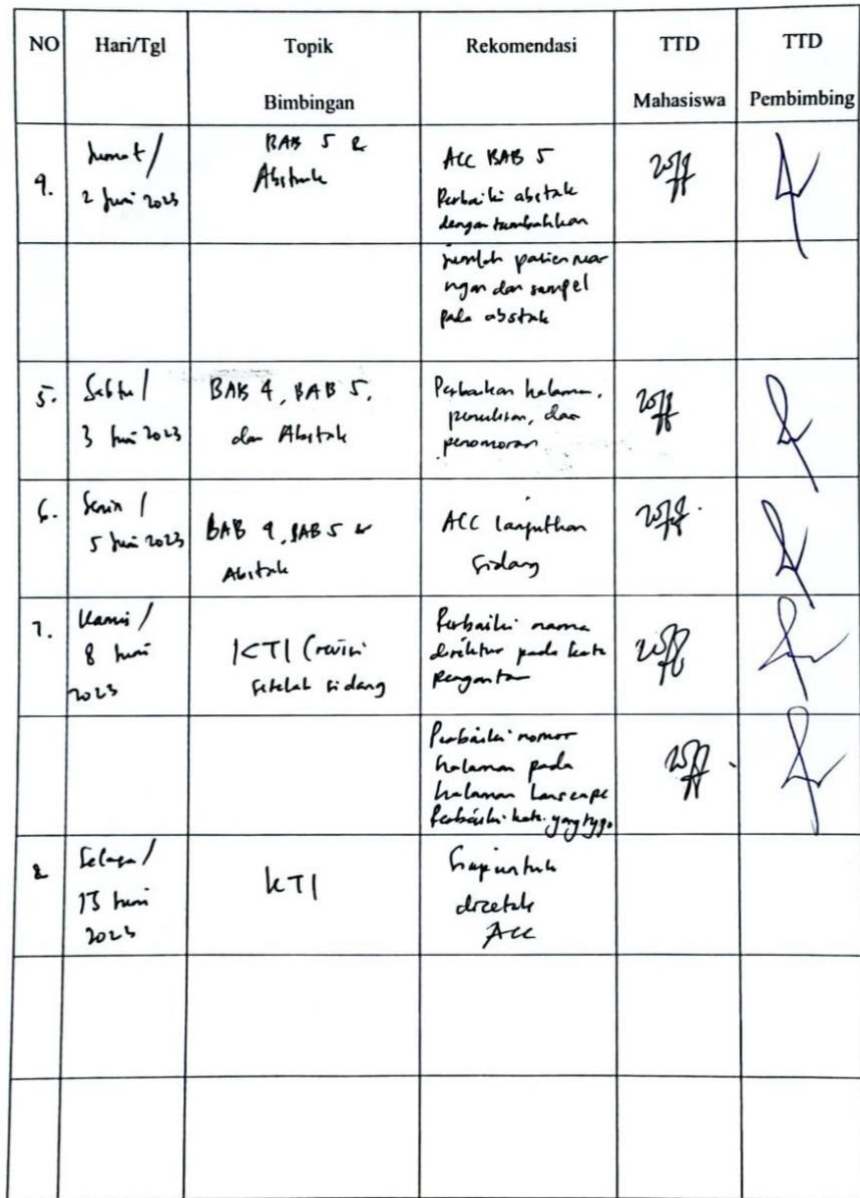 NO Hari/Tgl Topik Bimbingan Rekomendasi TTD Mahasiswa TTD Pembimbing
4.
Jumat /
2 Juni 2023
BAB 5 &
Abstrak
ACC BAB 5
Perbaiki abstak
dengan tambahkan
jumlah
dan sampel
pada abstak
5.
Sabtu /
3 Juni 2023
BAB 4, BAB 5,
dan Abstak
Perbaikan halaman,
penulisan, dan
penomoran
6.
Senin /
5 Juni 2023
BAB 4, BAB 5 &
Abstrak
ACC lanjutkan
Sidang
7.
Kamis /
8 Juni
2023
KTI (revisi
setelah sidang
Perbaiki nama
direktur pada kata
pengantar
Perbaiki nomor
halaman pada
halaman lanscape
Perbaiki kata yang typo
8
Selasa /
13 Juni
2023
KTI
Siap untuk
dicetak
ACC